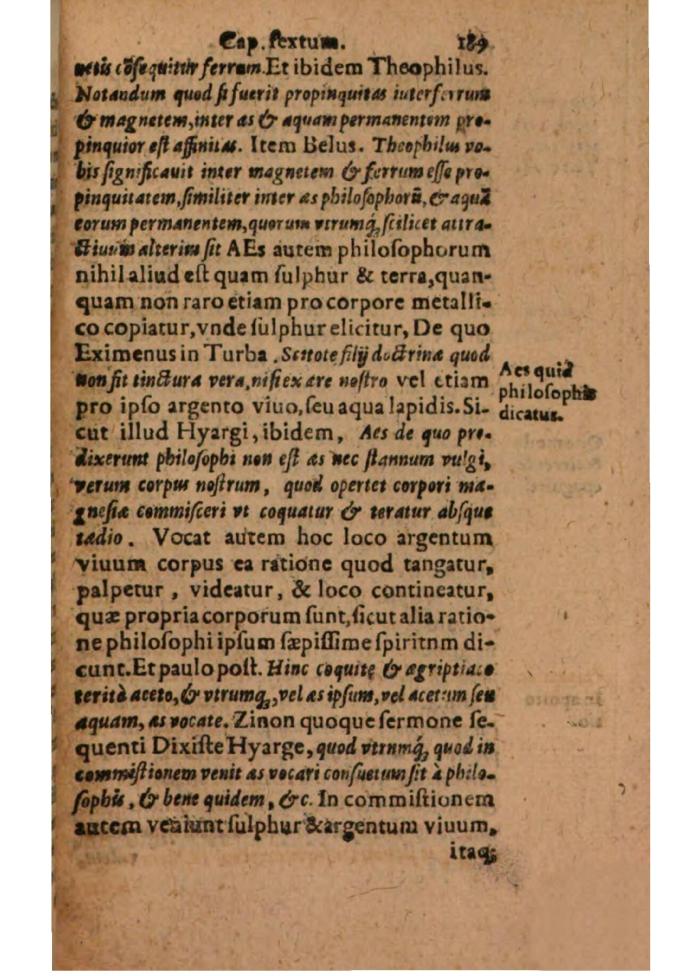 Cap. ſextum. 189
netis cõſequitur ferrum. Et ibidem Theophilus.
Notandum quod ſi fuerit propinquitas inter ferrum
& magnetem, inter æs & aquam permanentem pro-
pinquior eſt affinitas. Item Belus. Theophilus vo-
bis ſignificauit inter magnetem & ferrum eſſe pro-
pinquitatem, ſimiliter inter æs philoſophorũ, & aquã
eorum permanentem, quorum vtrumq́;, ſcilicet attra-
ctiuum alterius ſit AEs autem philoſophorum
nihil aliud eſt quam ſulphur & terra, quan-
quam non raro etiam pro corpore metalli-
co copiatur, vnde ſulphur elicitur, De quo
Eximenus in Turba. Scitote filij doctrinæ quod
non fit tinctura vera, niſi ex ære noſtro vel etiam
pro ipſo argento viuo, ſeu aqua lapidis. Si-
cut illud Hyargi, ibidem, Aes de quo præ-
dixerunt philoſophi non eſt æs nec ſtannum vulgi,
verum corpus noſtrum, quod opertet corpori ma-
gneſiæ commiſceri vt coquatur & teratur abſque
tædio. Vocat autem hoc loco argentum
viuum corpus ea ratione quod tangatur,
palpetur, videatur, & loco contineatur,
quæ propria corporum ſunt, ſicut alia ratio-
ne philoſophi ipſum ſæpiſſime ſpiritnm di-
cunt. Et paulo poſt. Hinc coquite & ægriptiaco
terità aceto, & vtrumq;, vel æs ipſum, vel acetum ſeu
aquam, æs vocate. Zinon quoque ſermone ſe-
quenti Dixiſte Hyarge, quod vtrnmq́;, quod in
commiſtionem venit æs vocari conſuetum ſit à philo-
ſophis, & bene quidem, &c. In commiſtionem
autem veniunt ſulphur & argentum viuum,
itaq;
Aes quid
philoſophis
dicatus.